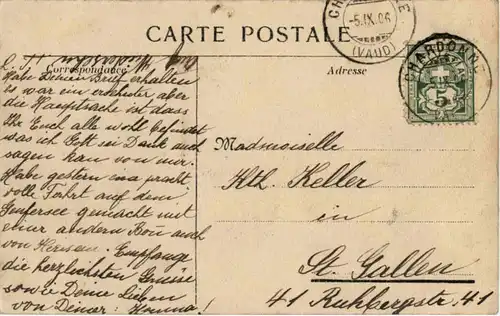 CARTE POSTALE
Correspondance
Adresse
5.IX.06
(VAUD)
CHARDONNE
5
Habe Deinen Brief erhalten
es war ein aber
die Hauptsache ist dass
Ihr Euch alle wohl befindet
was ich Gott sei Dank auch
sagen kan von mir.
Habe gestern ina pracht
volle Fahrt auf dem
Genfersee gemacht mit
einer andern Bon auch
von Herisau. Empfange
die herzlichsten Grüsse
sowie Deine Lieben
von Deiner: !
Mademoiselle
Kth. Keller
in
St. Gallen
41 Ruhbergstr. 41